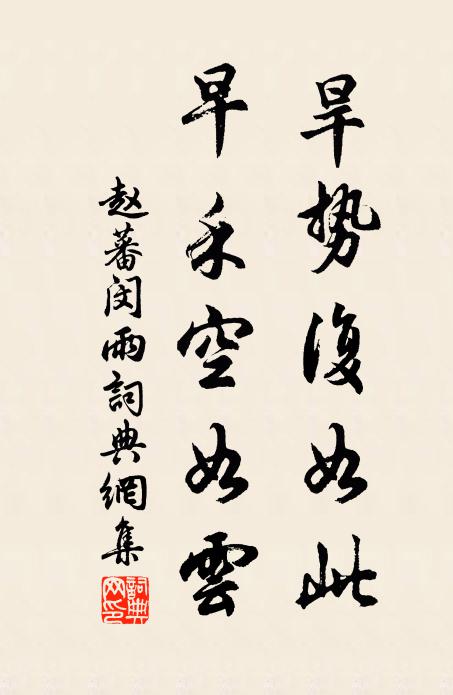 旱势復如此
早禾空如雲
赵蕃闵雨詞典網集
詞典網印